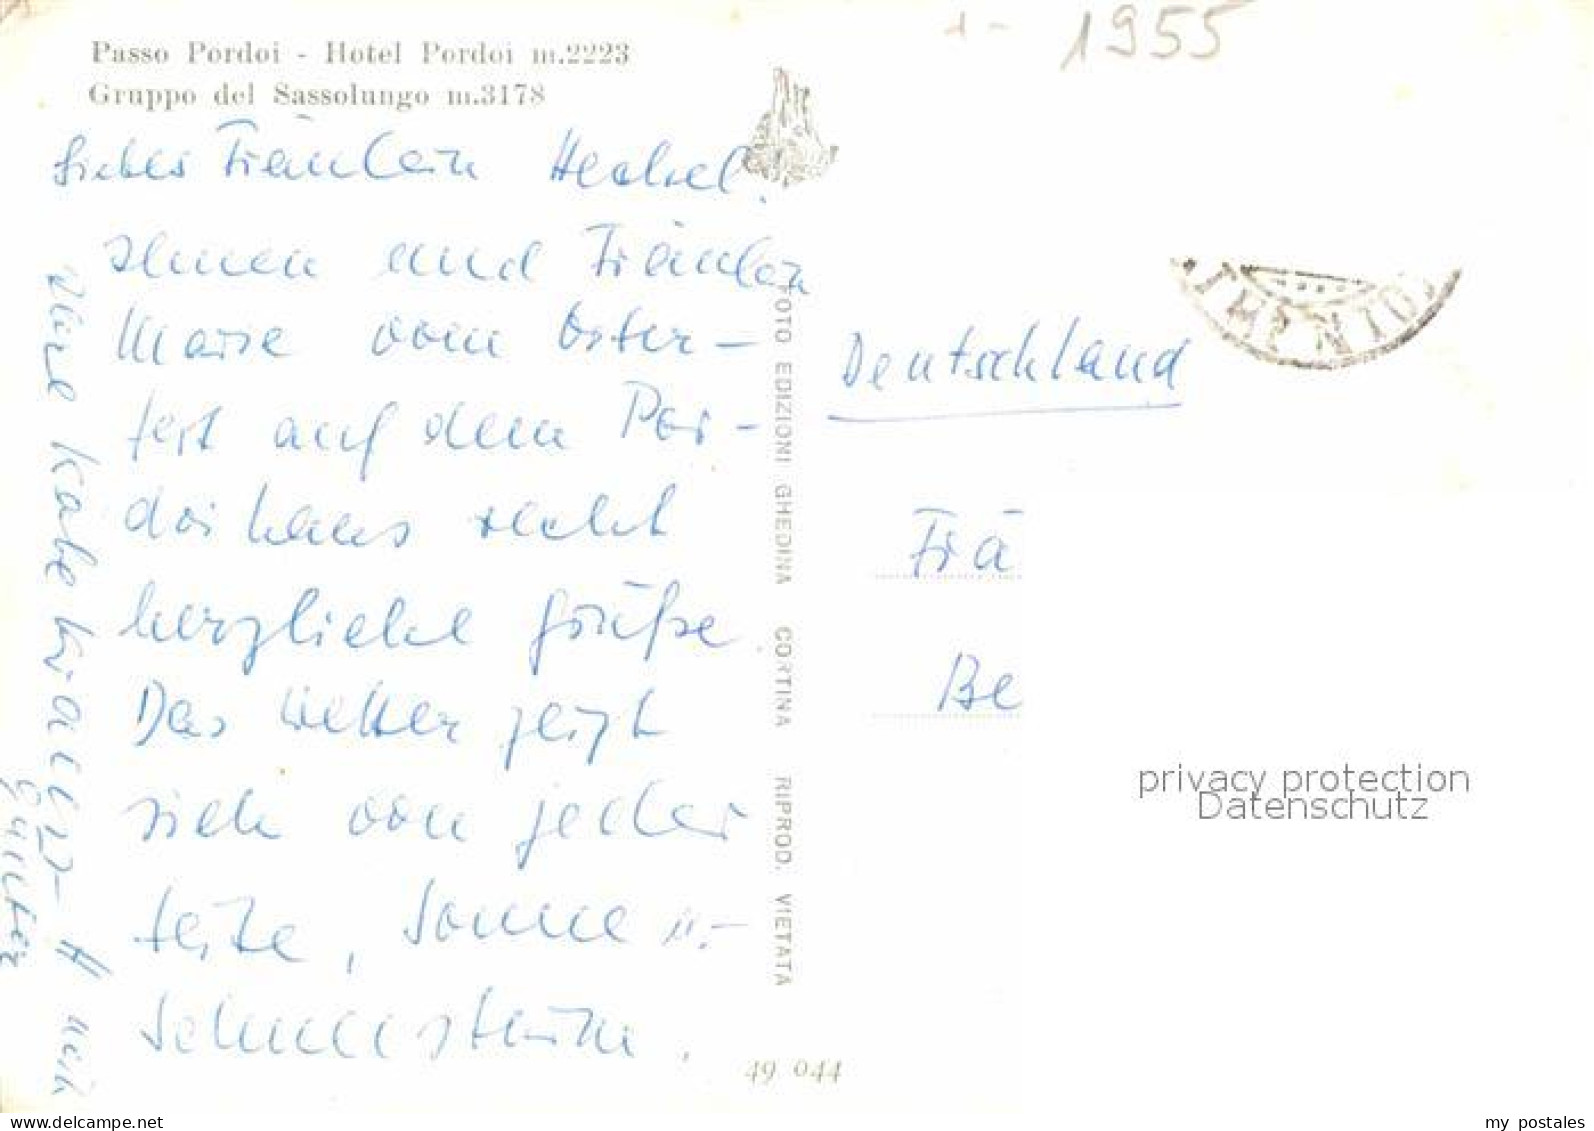 Passo Pordoi - Hotel Pordoi m.2223
Gruppo del Sassolungo m.3178
1955
Liebes Fräulein Heckel,
Ihnen und Fräulein
Marie vom Oster-
fest auf dem Por-
doihaus recht
herzliche Grüße
Das Wetter zeigt
sich von jeder
Seite, Sonne u.
Schneestürm.
Ihre Käte
und
Günter
FOTO EDIZIONI GHEDINA CORTINA RIPROD. VIETATA
Deutschland
Frä
Be
49 044
privacy protection
Datenschutz
my postales